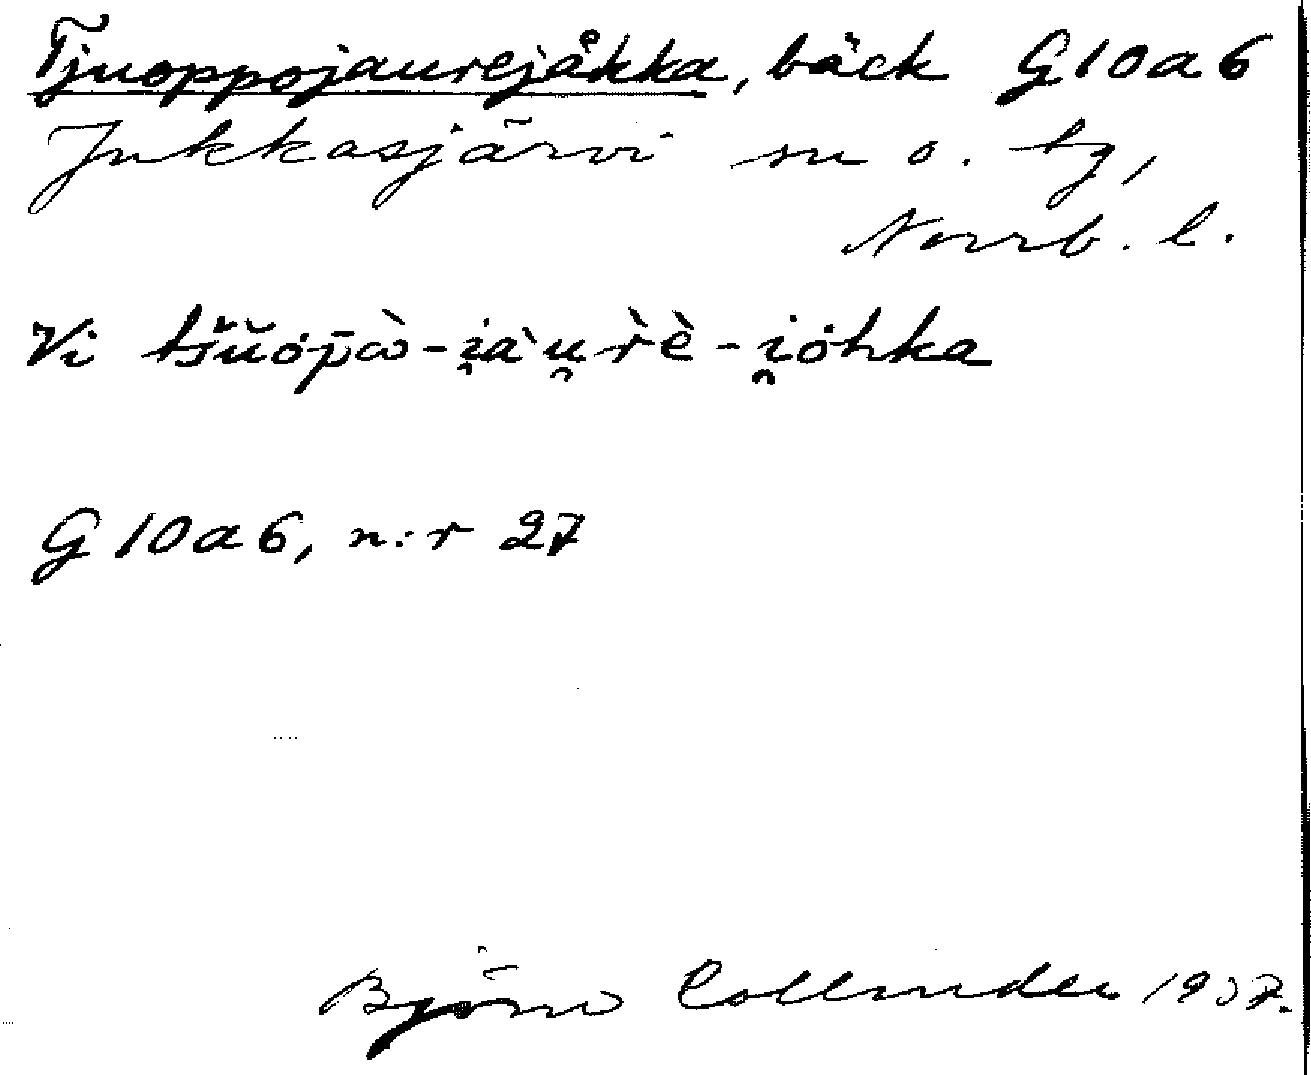 Tjuoppojaurejåkka, bäck G10a6
Jukkasjärvi sn o. tg,
Norrb. l.
Vi tšŭȯp̄ɷ̀-i̯àu̯r̀è-i̯ȯhka
G10a6, n:r 27
Björn Collinder 1937.